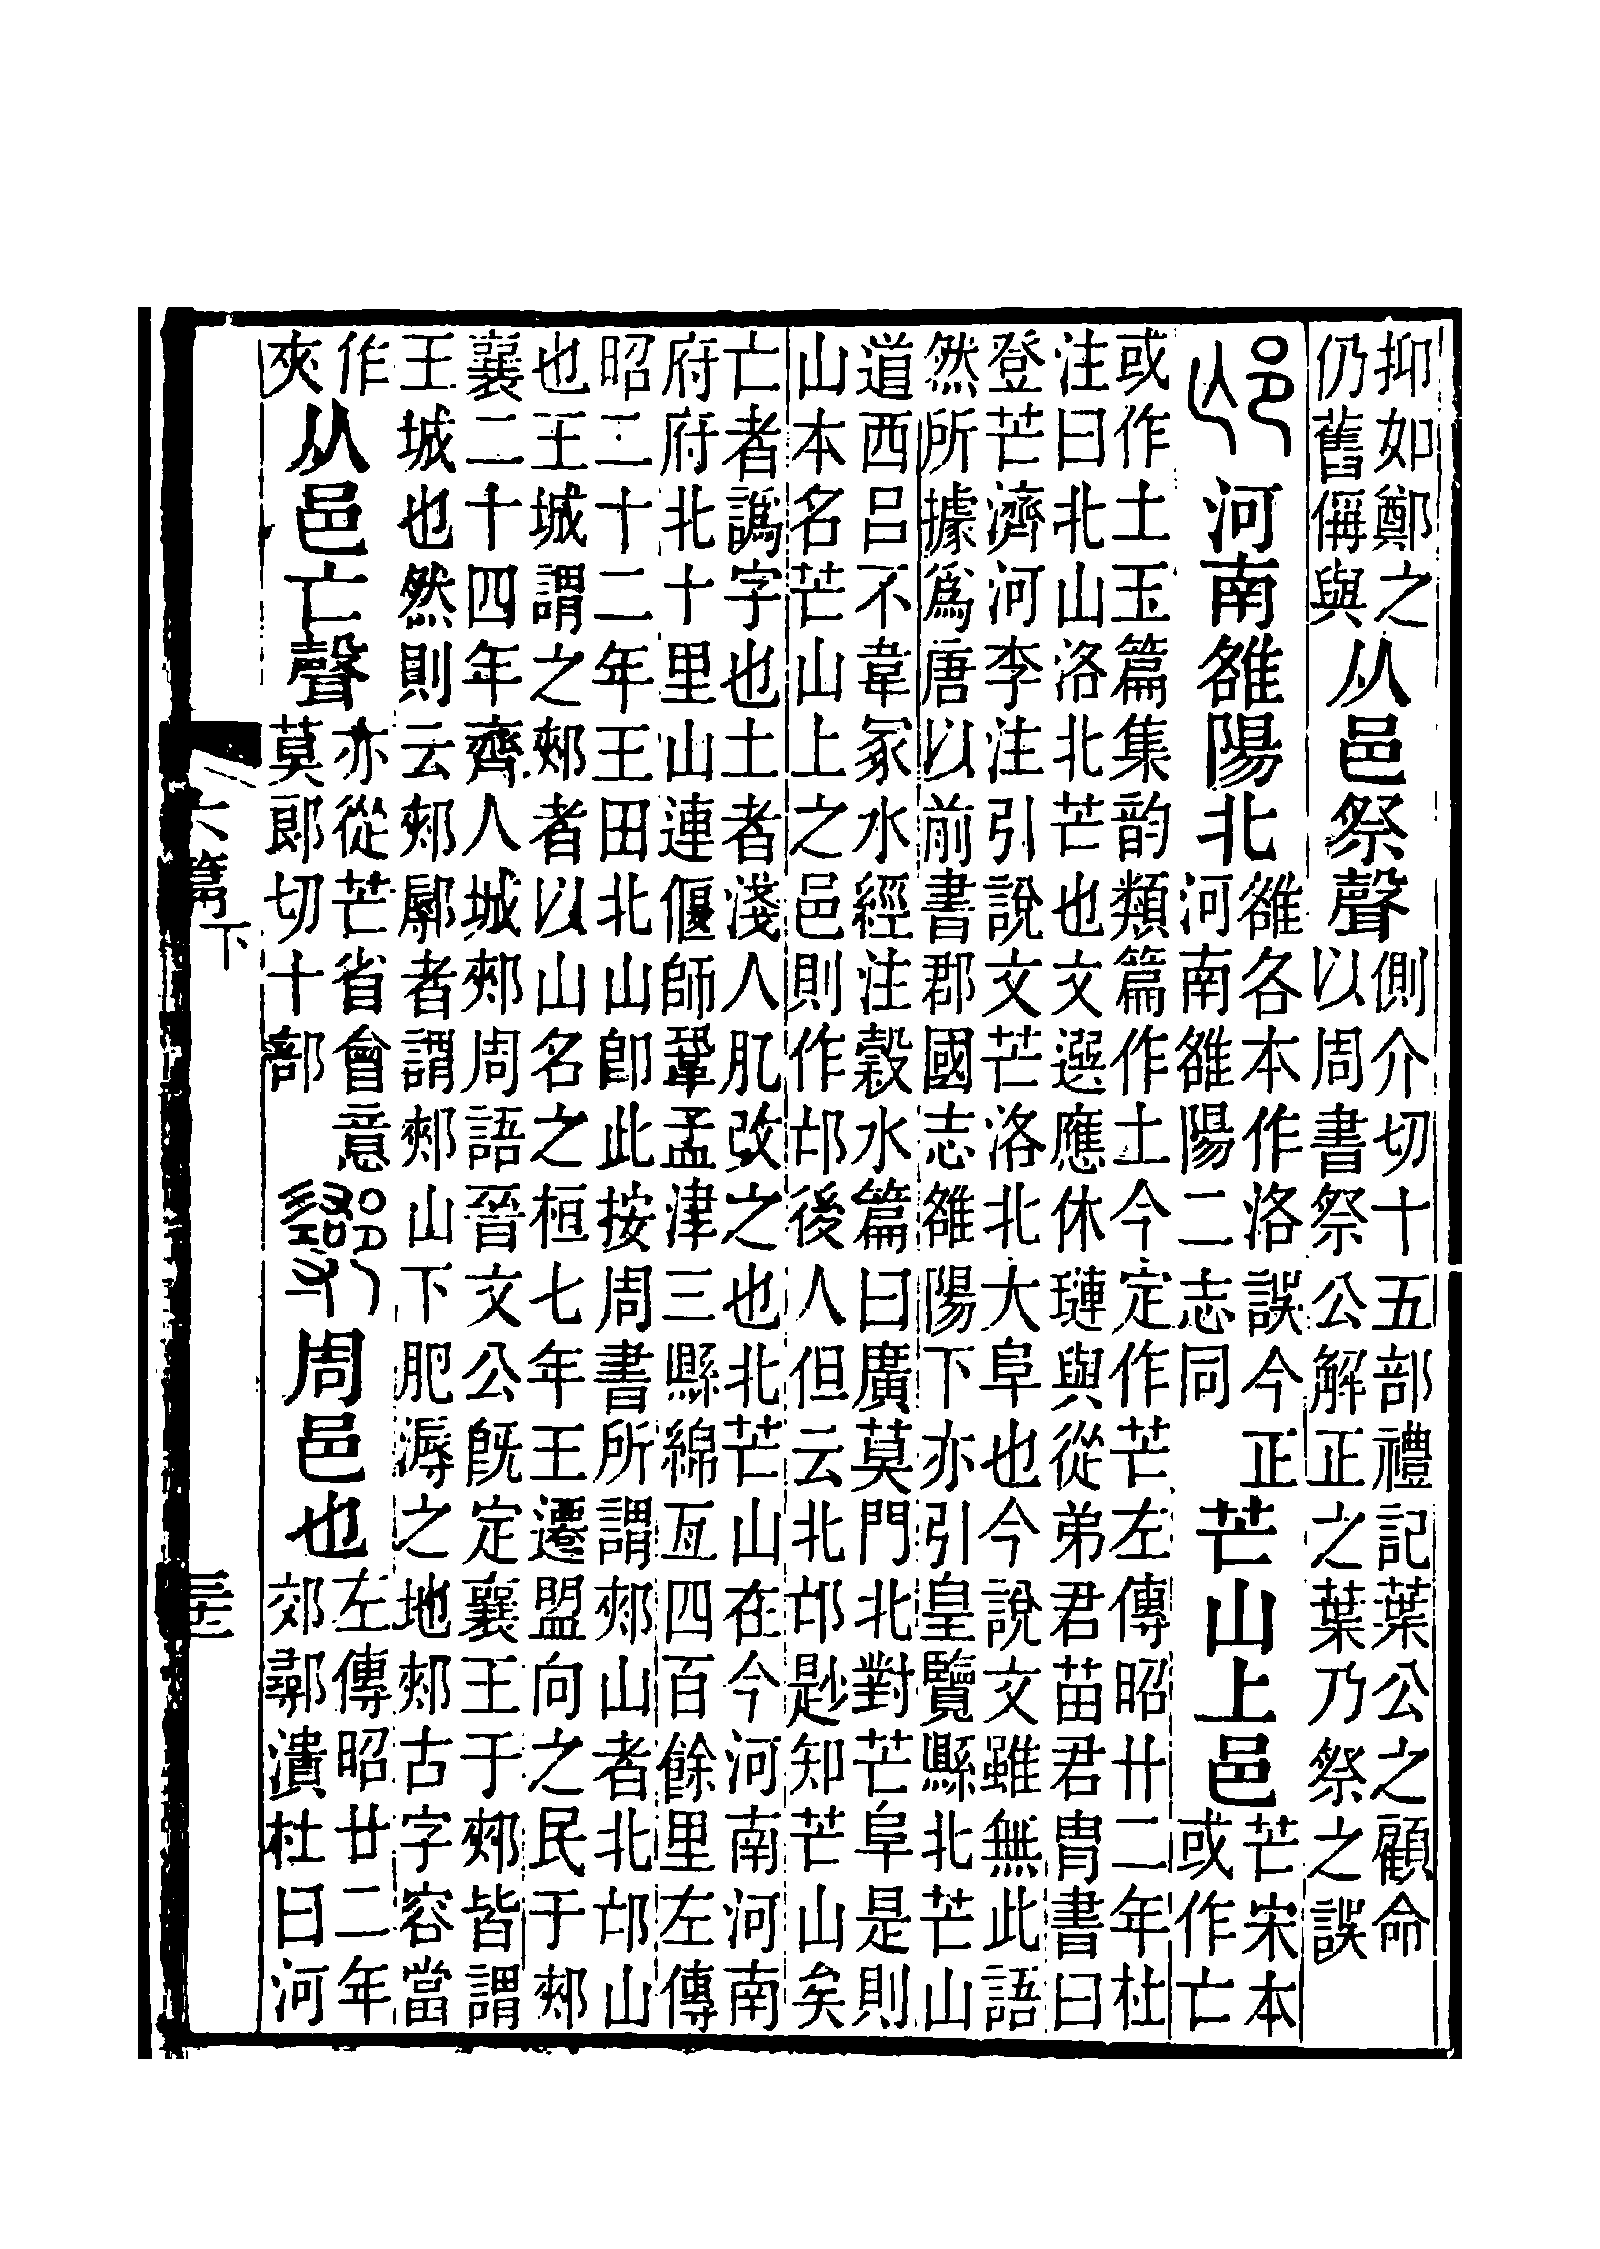 抑如鄭之
仍舊偁與
从邑祭聲
側介切十五部禮記葉公之顧命
以周書祭公解正之葉乃祭之誤
邙
河南雒陽北
雒各本作洛誤今正
河南雒陽二志同
芒山上邑
芒宋本
或作亡
或作土玉篇集韵類篇作土今定作芒左傳昭廿二年杜
注曰北山洛北芒也文選應休璉與從弟君苗君冑書曰
登芒濟河李注引說文芒洛北大阜也今說文雖無此語
然所據爲唐以前書郡國志雒陽下亦引皇覽縣北芒山
道西呂不韋冢水經注穀水篇曰廣莫門北對芒阜是則
山本名芒山上之邑則作邙後人但云北邙尟知芒山矣
亡者譌字也土者淺人肊改之也北芒山在今河南河南
府府北十里山連偃師鞏孟津三縣綿亙四百餘里左傳
昭二十二年王田北山卽此按周書所謂郟山者北邙山
也王城謂之郟者以山名之桓七年王遷盟向之民于郟
襄二十四年齊人城郟周語晉文公旣定襄王于郟皆謂
王城也然則云郟鄏者謂郟山下肥溽之地郟古字容當
作
夾
从邑亡聲
亦從芒省會意
莫郎切十部
鄩
周邑也
左傳昭廿二年
郊鄩潰杜曰河
六篇下